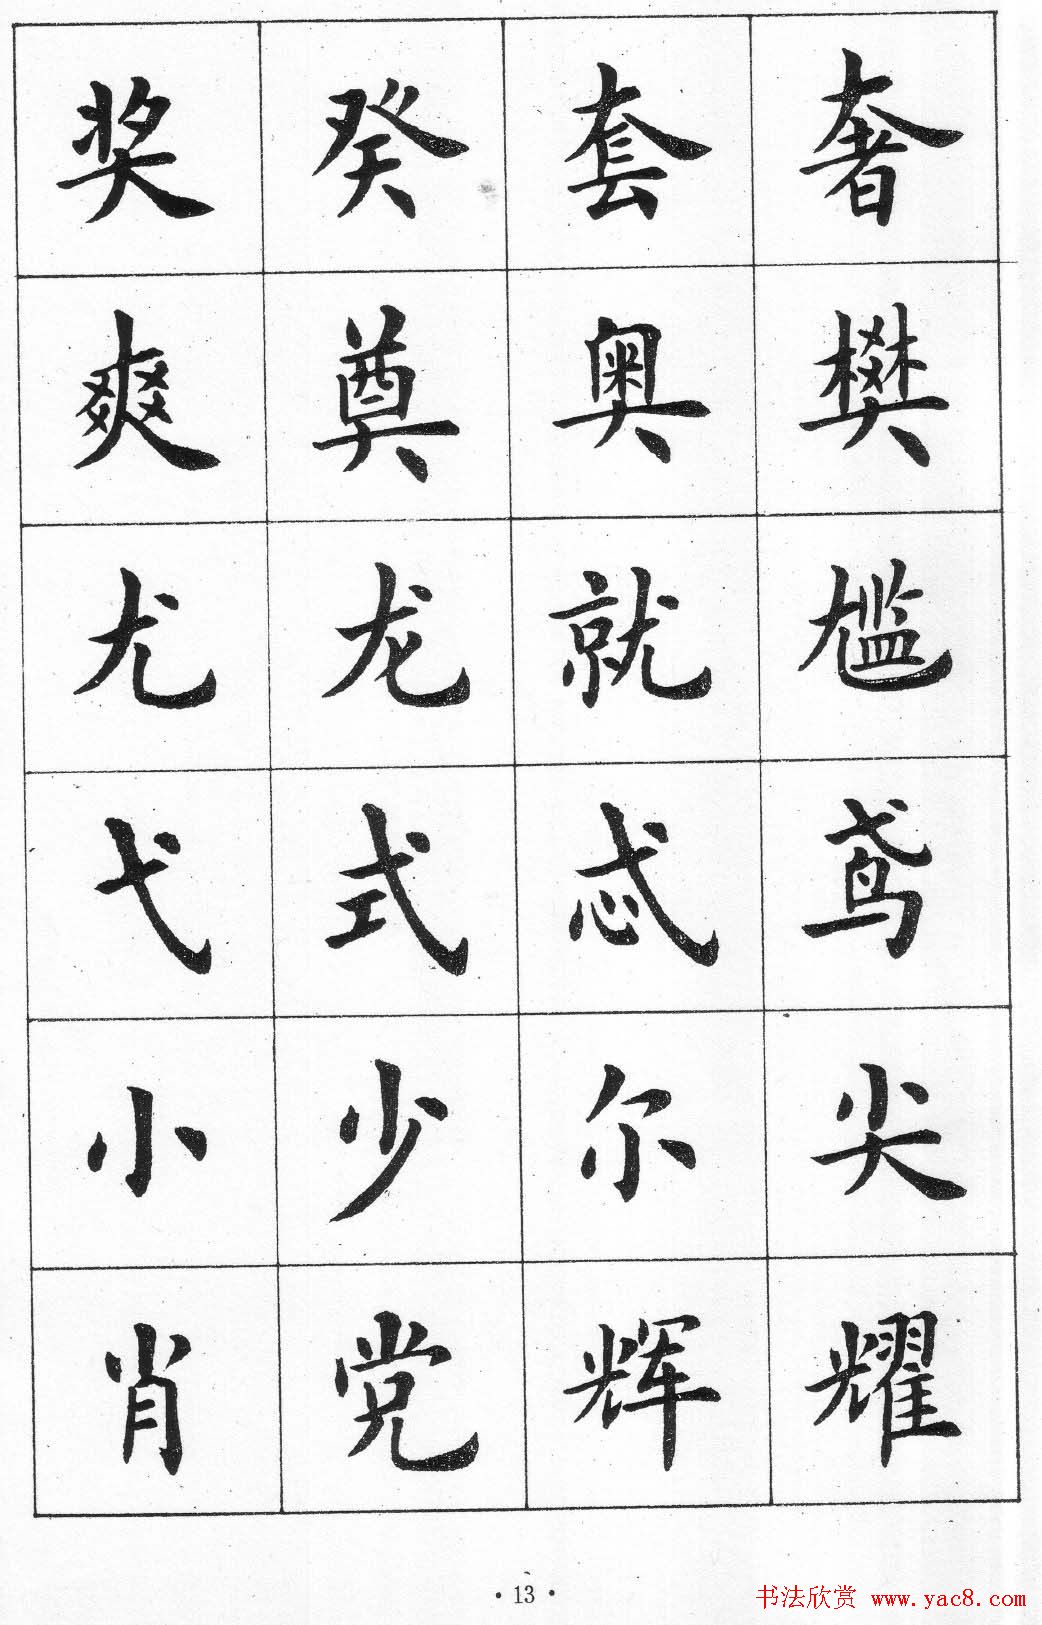 奖 癸 套 奢
爽 奠 奥 樊
尤 龙 就 尴
弋 式 忒 鸢
小 少 尔 尖
肖 党 辉 耀
·13·
书法欣赏 www.yac8.com